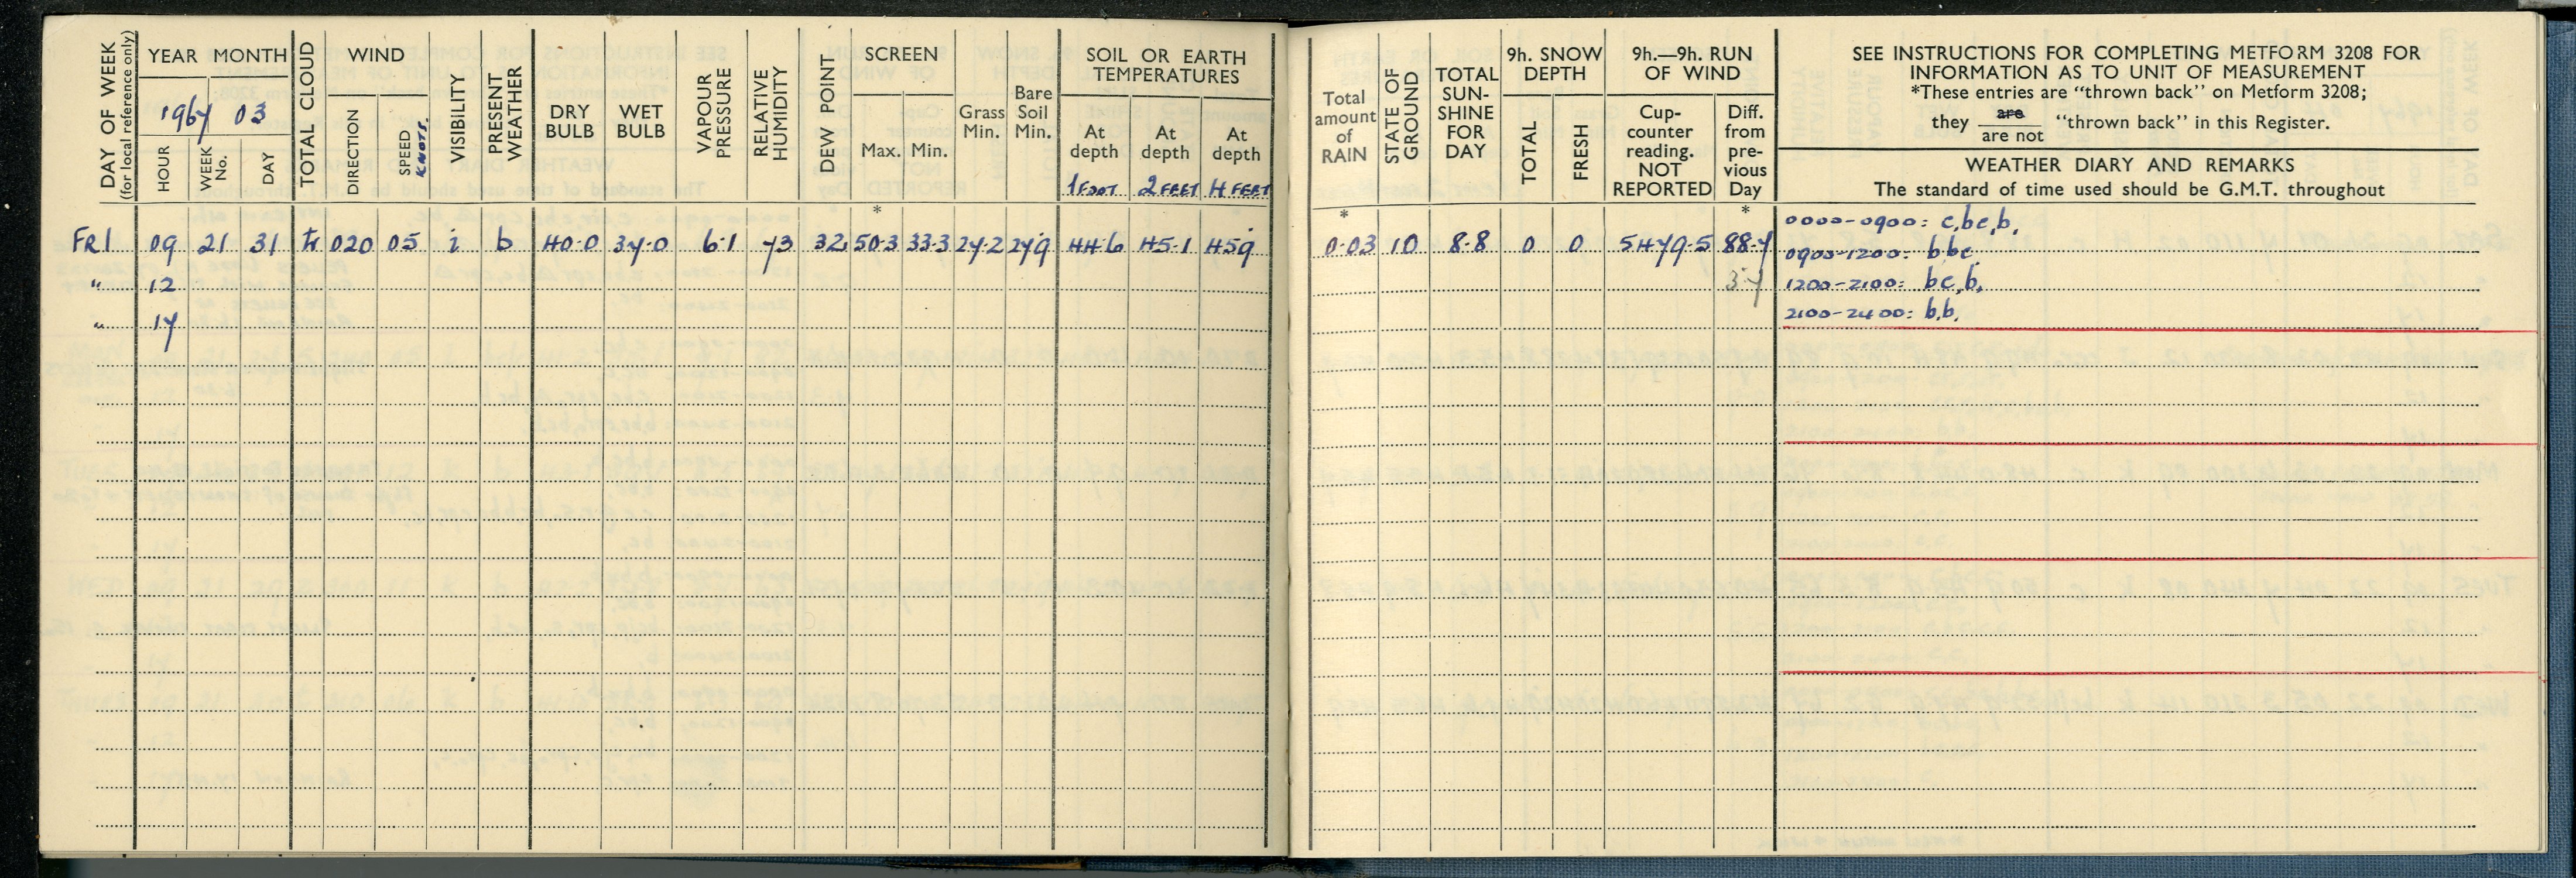 DAY OF WEEK
(for local reference only)
YEAR MONTH
1967 03
HOUR WEEK No. DAY
TOTAL CLOUD
WIND
DIRECTION SPEED KNOTS.
VISIBILITY
PRESENT WEATHER
DRY BULB WET BULB
VAPOUR PRESSURE
RELATIVE HUMIDITY
DEW POINT
SCREEN
Max. Min.
Grass Min.
Bare Soil Min.
SOIL OR EARTH TEMPERATURES
At depth At depth At depth
1 FOOT 2 FEET 4 FEET
Total amount of RAIN
STATE OF GROUND
TOTAL SUN-SHINE FOR DAY
9h. SNOW DEPTH
TOTAL FRESH
9h.—9h. RUN OF WIND
Cup-counter reading. NOT REPORTED
Diff. from pre-vious Day
SEE INSTRUCTIONS FOR COMPLETING METFORM 3208 FOR
INFORMATION AS TO UNIT OF MEASUREMENT
*These entries are "thrown back" on Metform 3208;
they are / are not "thrown back" in this Register.
WEATHER DIARY AND REMARKS
The standard of time used should be G.M.T. throughout
* * *
FRI 09 21 31 tr 020 05 i b 40.0 37.0 6.1 73 32 50.3 33.3 27.2 27.9 44.6 45.1 45.9 0.03 10 8.8 0 0 5479.5 88.7
" 12 3.7
" 17
0000-0900: c,bc,b,
0900-1200: b.bc.
1200-2100: bc,b,
2100-2400: b,b,